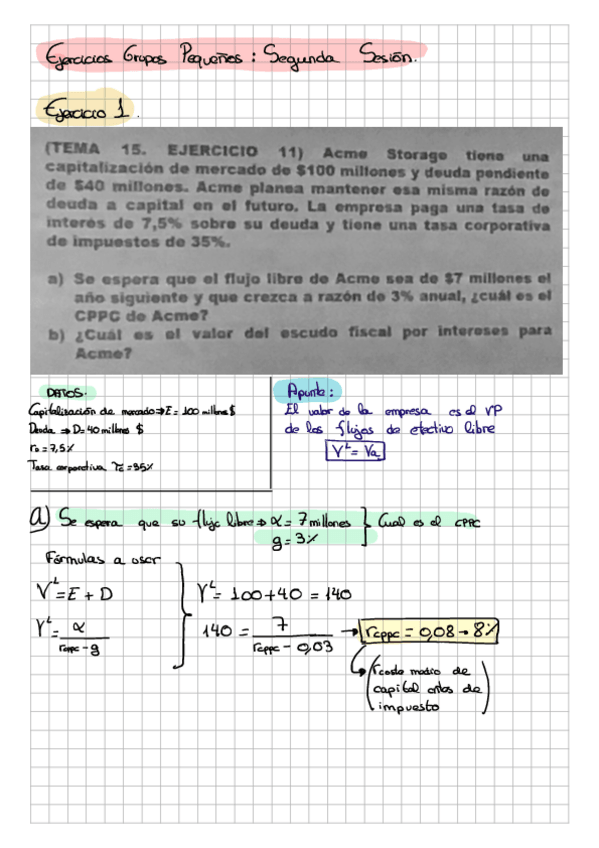 Ejercicios Grupos Pequeños: Segunda Sesión.
Ejercicio 1.
(TEMA 15. EJERCICIO 11) Acme Storage tiene una
capitalización de mercado de $100 millones y deuda pendiente
de $40 millones. Acme planea mantener esa misma razón de
deuda a capital en el futuro. La empresa paga una tasa de
interés de 7,5% sobre su deuda y tiene una tasa corporativa
de impuestos de 35%.
a) Se espera que el flujo libre de Acme sea de $7 millones el
año siguiente y que crezca a razón de 3% anual, ¿cuál es el
CPPC de Acme?
b) ¿Cuál es el valor del escudo fiscal por intereses para
Acme?
DATOS.
Capitalización de mercado ⇒ E = 100 millones $
Deuda ⇒ D = 40 millones $
r_D = 7,5%
Tasa corporativa τc = 35%
Apunte:
El valor de la empresa es el VP
de los flujos de efectivo libre
V^L = Va
a) Se espera que su flujo libre ⇒ α = 7 millones } Cual es el CPPC
g = 3%
Fórmulas a usar
V^L = E + D
V^L = α / (rcppc - g)
V^L = 100 + 40 = 140
140 = 7 / (rcppc - 0,03) → rcppc = 0,08 → 8%
(rcoste medio de
capital antes de
impuesto)